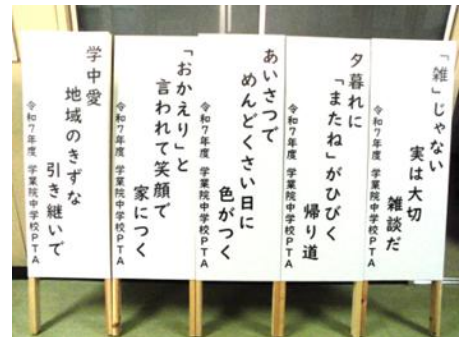 「雑」じゃない
実は大切
雑談だ
令和7年度 学業院中学校PTA
夕暮れに
「またね」がひびく
帰り道
令和7年度 学業院中学校PTA
あいさつで
めんどくさい日に
色がつく
令和7年度 学業院中学校PTA
「おかえり」と
言われて笑顔で
家につく
令和7年度 学業院中学校PTA
学中愛
地域のきずな
引き継いで
令和7年度 学業院中学校PTA